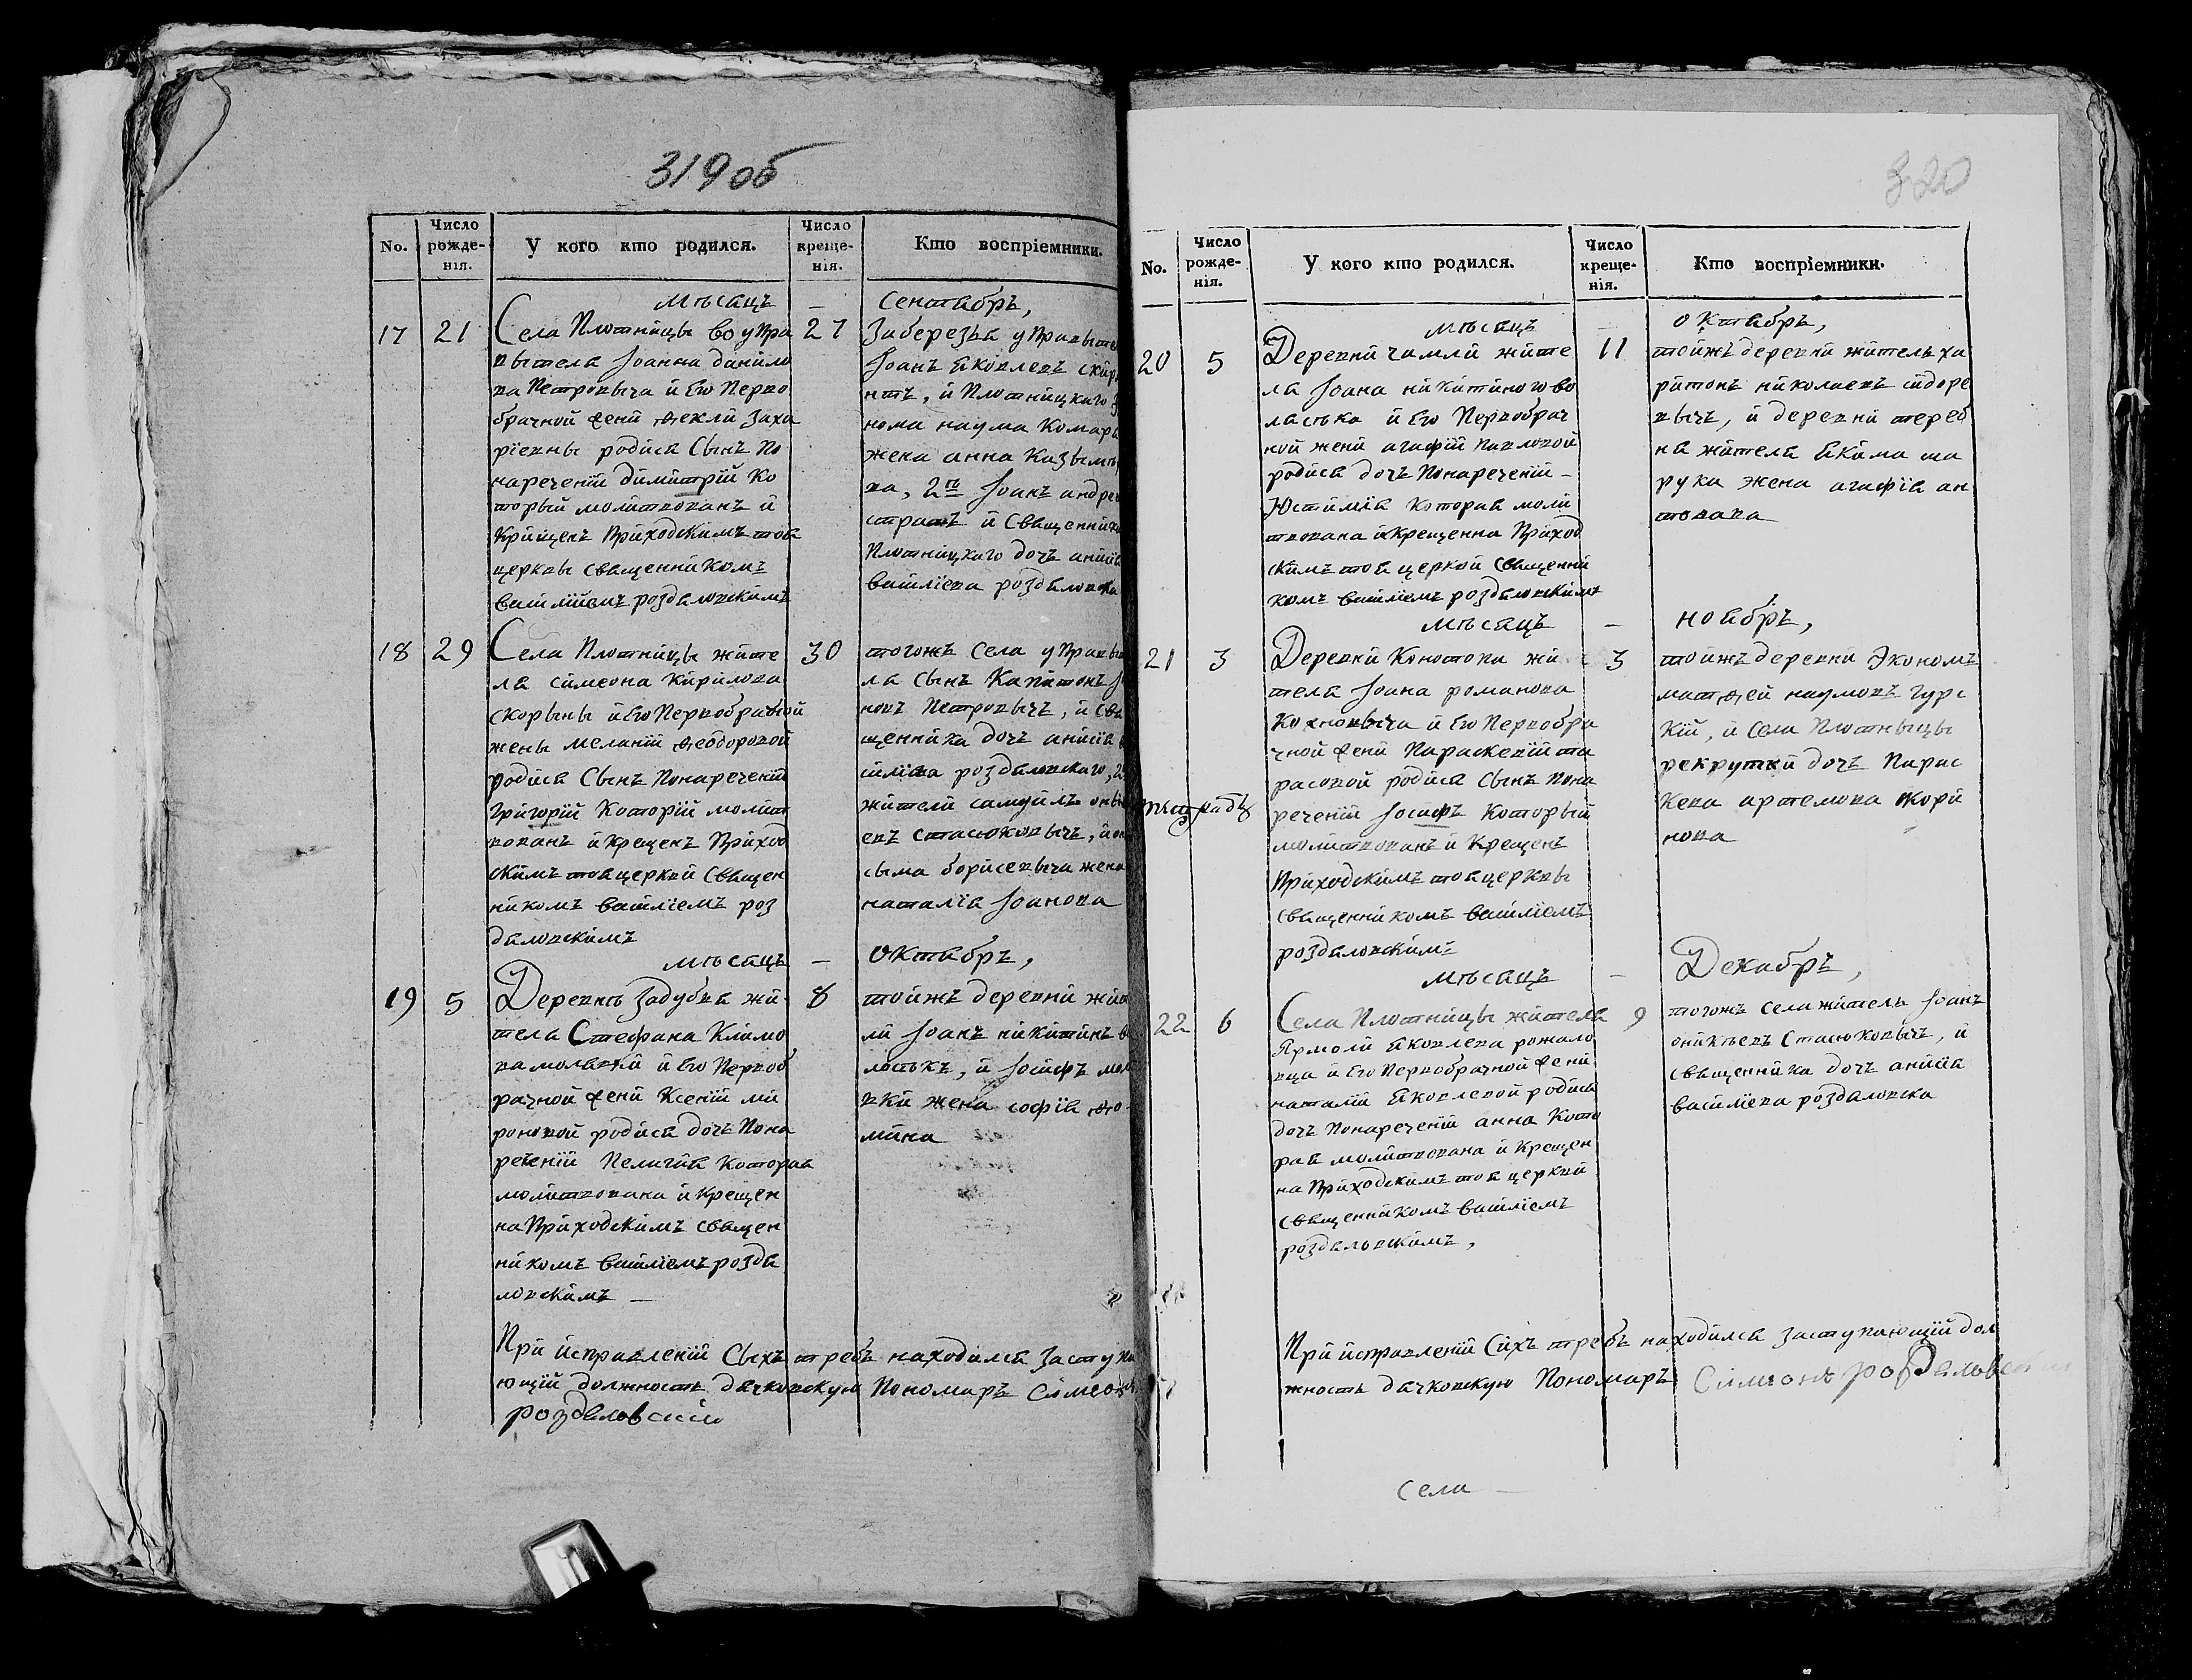 319 об
No.
Число рожде-нія.
У кого кто родился.
Число креще-нія.
Кто воспріемники.
Мѣсяцъ — Сентябрь,
17 21
Села Плотницы во упра
вытеля Іоанна Данило
ва Петровыча и Его Перво
брачной жени Ѳекли Заха
ріевны родися Сынъ По
наречении Димитрій Ко
торый молитвованъ и
Крищенъ Приходскимъ тоя
церквы священникомъ
Василіемъ роздяловскимъ
27
Заберезья управыте
Іоанъ Яковлевъ
и Плотницкаго
нома наума Комар
жена анна Казьми
ва, 2го Іоанъ андре
и Священника
Плотницкаго дочь анисія
Василіева роздяловска
18 29
Села Плотницы жите
ля симеона Кирилова
Скорыны и Его Первобрачной
жены мелании Ѳеодоровой
родися Сынъ Понаречении
Григорій Которій молит
вованъ и Крещенъ Приход
скимъ тоя церкви Священ
никомъ Василіемъ роз
дяловскимъ
30
тогожъ Села управы
ля Сынъ Капитонъ
новъ Петровычъ, и Свя
щенника дочь анисія
силіева роздяловскаго,
жители самуилъ
евъ Стасюковычъ, и
сыма борисевыча жена
наталія Іоанова
Мѣсяцъ — Октябрь,
19 5
Деревнѣ Задубья жи
теля Стефана Климо
ва молявки и Его Первоб
рачной жени Ксении ми
роновой родися дочь Пона
речении Пелагия Которая
молитвована и Крещен
на Приходскимъ священ
никомъ Василіемъ роздя
ловскимъ —
8
тойжъ деревни жи
ли Іоанъ никитинъ
ластъкъ, и Іосифъ мол
вки жена софія Ѳо
мина
При исправлении Сыхъ требъ находился Заступа
ющій должность дячковскую Пономарь Симеонъ
роздяловскій
320
No.
Число рожде-нія.
У кого кто родился.
Число креще-нія.
Кто воспріемники.
Мѣсяцъ — Октябрь,
20 5
Деревни чамли жите
ля Іоана никитиного во
ластька и Его Первобрач
ной жени агафіи Павловой
родися дочь Понаречении —
Юстимія Которая моли
твована и Крещенна Приход
скимъ тоя церкви Священни
комъ Василіемъ роздяловскимъ
11
тойжъ деревни житель ха
ритонъ николаевъ сидоре
вычъ, и деревни тереб
на жителя Якима ша
рука жена агафія ан
тонова
Мѣсяцъ — ноябрь,
21 3
Деревни Конотопа жи
теля Іоана романова
Кохновыча и Его Первобра
чной жени Параскевии та
расовой родися Сынъ Пона
речении Іосифъ Который
молитвованъ и Крещенъ
Приходскимъ тоя церквы
священникомъ Василіемъ
роздяловскимъ
3
тойжъ деревни Экономъ
матѳей наумовъ Гурс
кій, и Села Плотныцы
рекрутки дочь Парас
Кева артемова Скори
нова
Мѣсяцъ — Декабрь,
22 6
Села Плотницы жителя
Ярмоли Яковлева рожало
вца и Его Первобрачной жени
наталіи Яковлевой родися
дочь Понаречении анна Кото
рая молитвована и Крещен
на Приходскимъ тоя церкви
священникомъ Василіемъ
роздяловскимъ,
9
тогожъ села житель Іоанъ
Стасюковычъ, и
священника дочь анисія
василіева роздяловска
При исправлении Сихъ требъ находился заступающій дол
жность дячковскую Пономарь Симеонъ роздяловскій
Села —